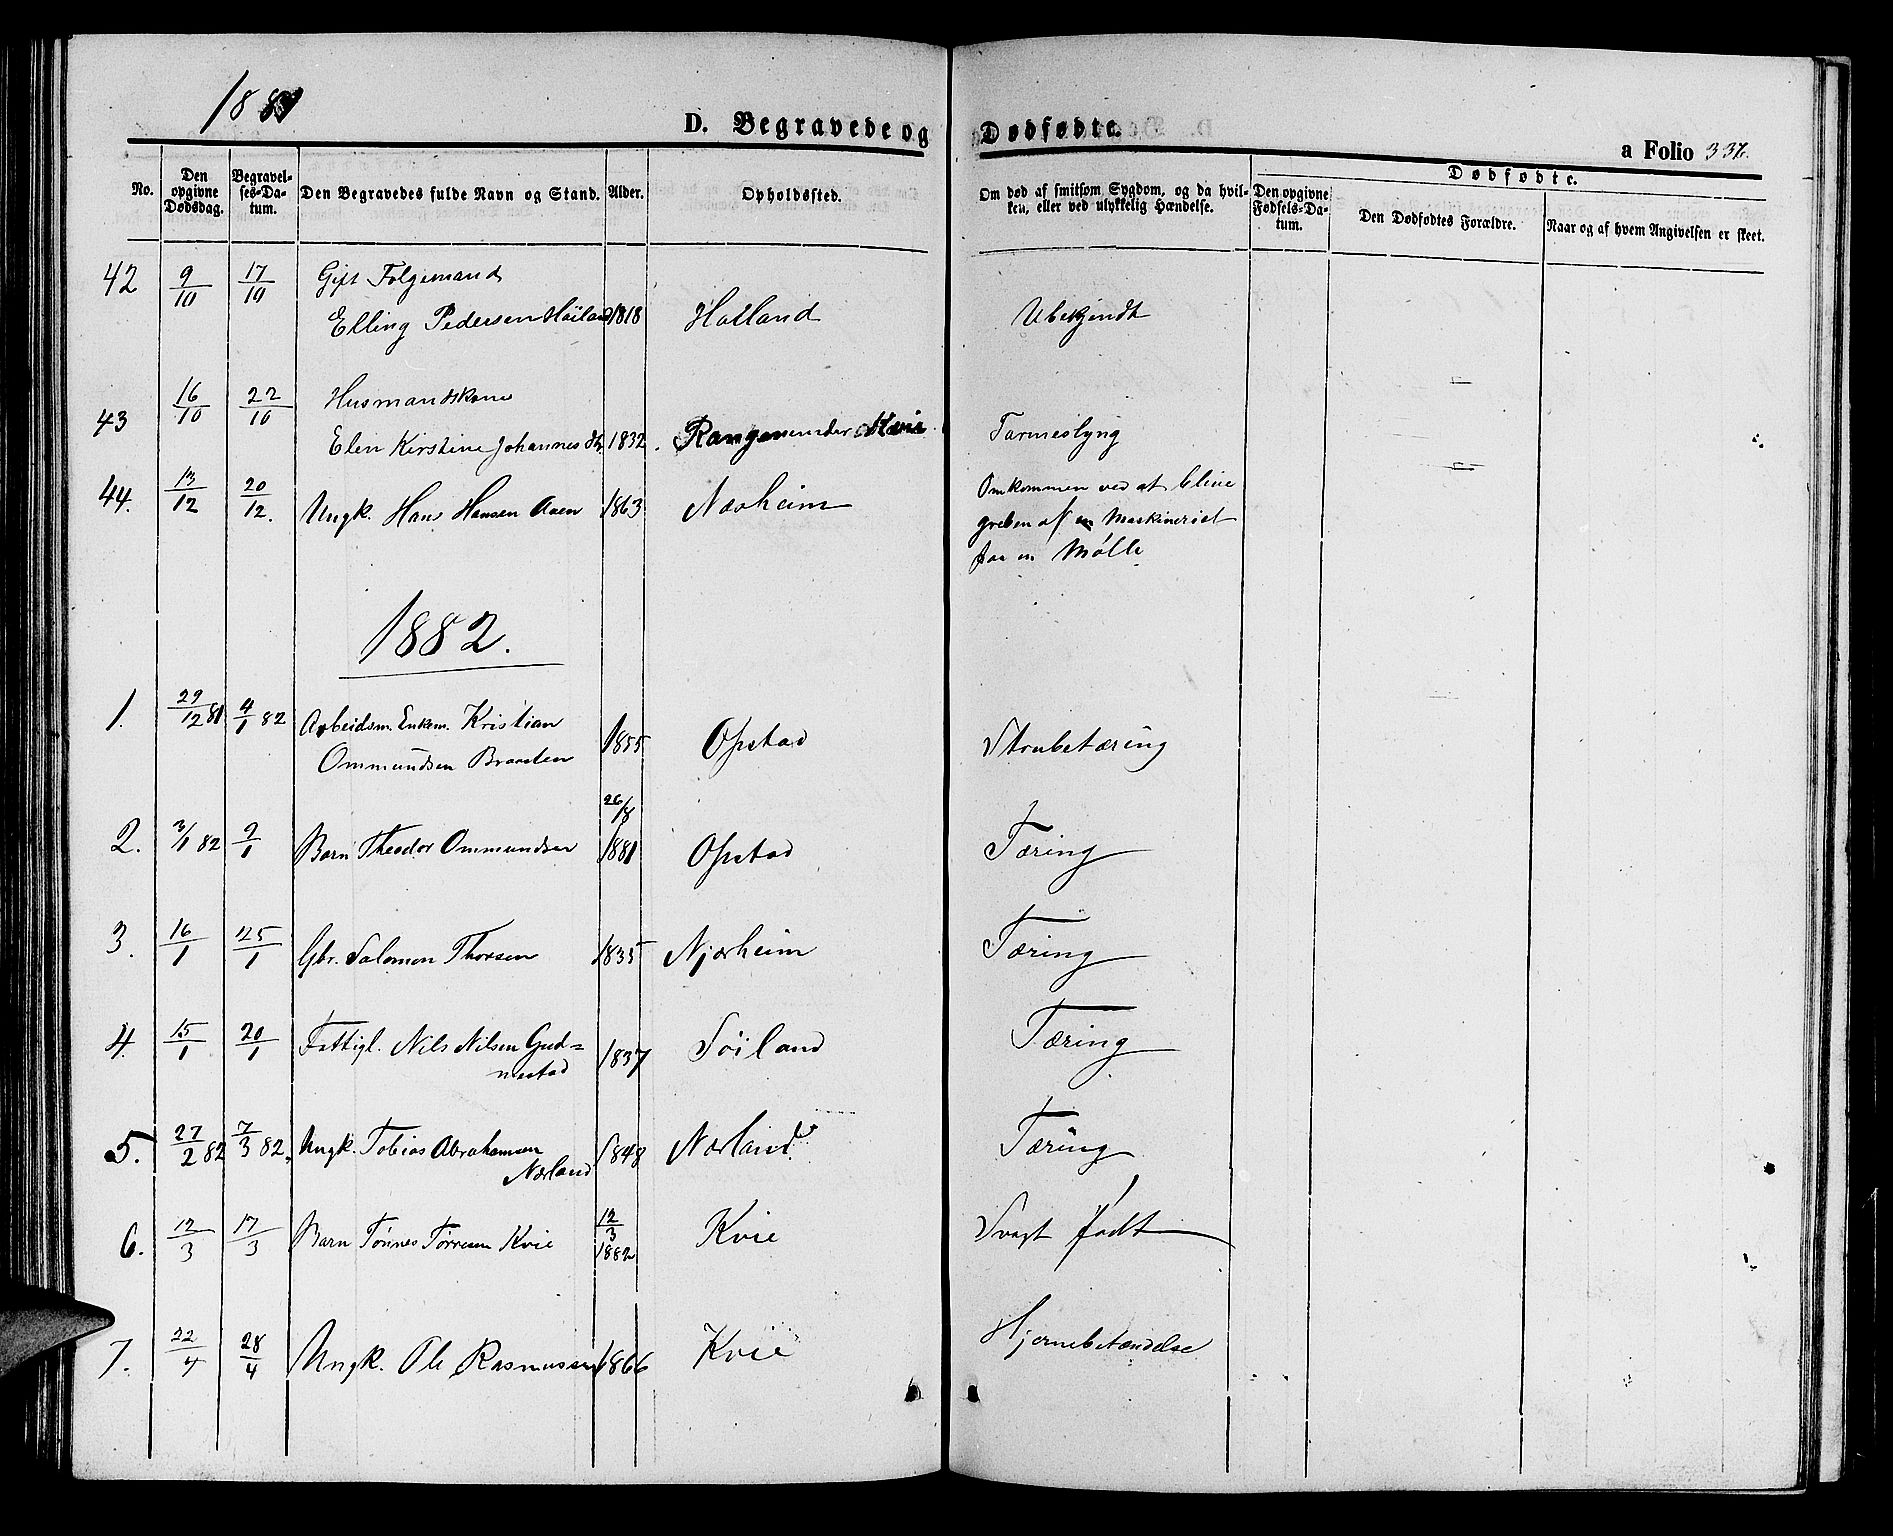 1881
D. Begravede og Dødfødte.
a Folio 337.
No.
Den opgivne Dødsdag.
Begravel- ses-Da- tum.
Den Begravedes fulde Navn og Stand.
Alder.
Opholdssted.
Om død af smitsom Sygdom, og da hvil-
ken, eller ved ulykkelig Hændelse.
Dødfødte.
Den opgivne Fødsels-Da- tum.
Den Dødfødtes Forældre.
Naar og af hvem Angivelsen er skeet.
42 9/10 17/10 Gift Folgemand
Elling Pedersen Høiland 1818 Hatland Ubekjendt
16/10 22/10 Husmandskone
43 Elen Kirstine Johannesdtr. 1832. Rangen under Kvie Tarmeslyng
44. 13/12 20/12. Ungk. Hans Hansen Aaen 1863 Nærheim Omkommen ved at blive
greben af Maskineriet
paa en Mølle
1882.
1. 29/12 81 4/1 82 Arbeidsm. Enkem. Kristian
Ommundsen Braaten 1855 Opstad Strubetæring
26/8
2. 3/1 82 9/1 Barn Theodor Ommundsen 1881 Opstad Tæring
3. 16/1 25/1 Gbr. Salomon Thorsen 1835 Njærheim Tæring
4. 15/1 20/1 Fattigl. Nils Nilsen Gud=
nestad 1837 Søiland Tæring
5. 27/2 82 7/3 82. Ungk. Tobias Abrahamsen
Nærland 1848 Nærland Tæring
6. 12/3 17/3 Barn Tønnes Tørresen Kvie 12/3 1882 Kvie Svagt født
7. 22/4 28/4 Ungk. Ole Rasmussen 1866 Kvie Hjernebetændelse